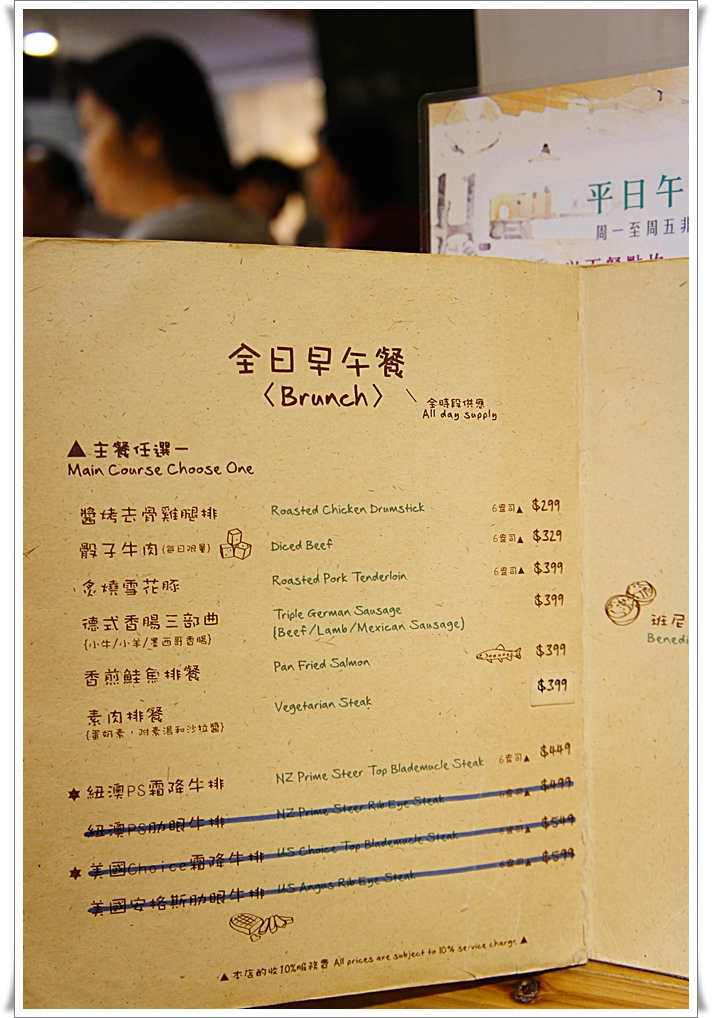 平日午
周一至周五非
全日早午餐
〈Brunch〉
全時段供應
All day supply
▲主餐任選一
Main Course Choose One
醬烤去骨雞腿排 Roasted Chicken Drumstick 6盎司▲ $299
骰子牛肉(每日限量) Diced Beef 6盎司▲ $329
炙燒雪花豚 Roasted Pork Tenderloin 6盎司▲ $399
德式香腸三部曲 Triple German Sausage $399
{小牛/小羊/墨西哥香腸} {Beef/Lamb/Mexican Sausage}
香煎鮭魚排餐 Pan Fried Salmon $399
素肉排餐 Vegetarian Steak $399
{蛋奶素,附素湯和沙拉醬}
紐澳PS霜降牛排 NZ Prime Steer Top Blademucle Steak 6盎司▲ $449
紐澳PS肋眼牛排 NZ Prime Steer Rib Eye Steak 6盎司▲ $499
美國Choice霜降牛排 US Choice Top Blademucle Steak 6盎司▲ $549
美國安格斯肋眼牛排 US Angus Rib Eye Steak 6盎司▲ $599
▲本店酌收10%服務費 All prices are subject to 10% service charge▲
班尼
Benedi